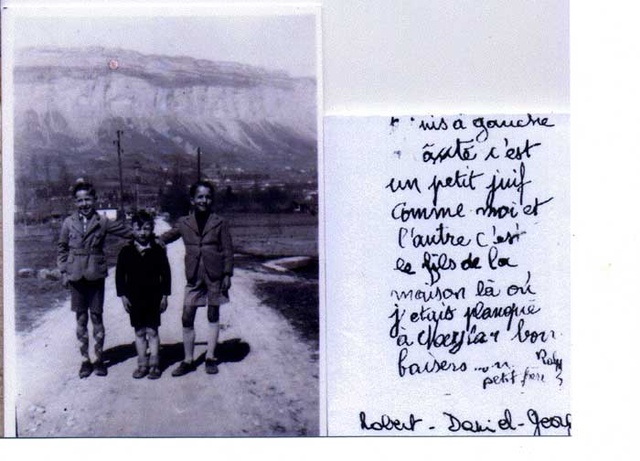 nis à gauche
c'est
un petit juif
comme moi et
l'autre c'est
le fils de la
maison là où
j'étais planqué
à bon
baisers
petit frère
Robert - Daniel - Geor